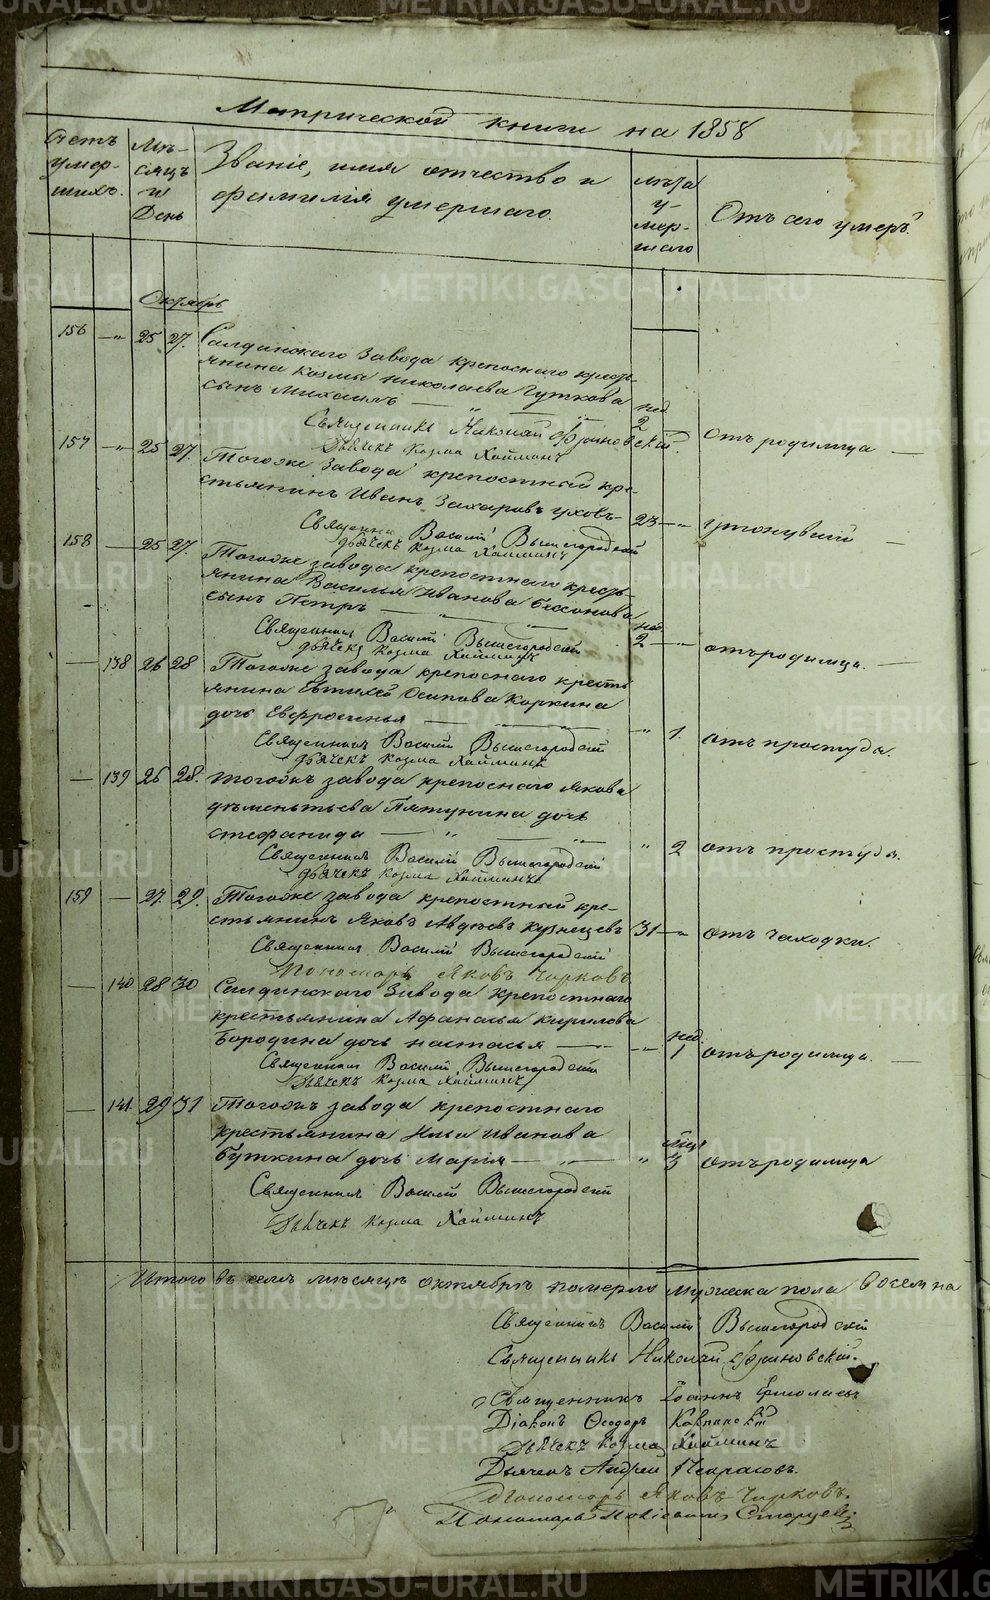 Метрической книги на 1858
Счетъ умер- шихъ.
Мѣ- сяцъ и День
Званіе, имя отчество и фамилія умершаго.
лѣта у- мер- шаго
Отъ чего умеръ
Октябрь
156 — " 25 27. Салдинскаго Завода крепоснаго кресть-
янина Козмы Николаева Гуткова
сынъ Михаилъ — " — нед. 2 отъ родимца —
Священникъ Николай
Дьячекъ Козма Хайминъ
157 " 25 27. Тогоже Завода крепостный кре-
стьянинъ Иванъ Захаровъ 23 — "
Священникъ Василій Вышегородскій
дьячекъ Козма Хайминъ
158 — 25 27. Тогоже завода крепостнаго кресть-
янина Василья Иванова Бессонова
сынъ Петръ — " — нед. 2 — " отъ родимца. —
Священникъ Василій Вышегородскій
дьячекъ Козма Хайминъ
— 138 26 28 Тогоже завода крепоснаго кресть-
янина Евтихея Осипова Коркина
дочь Евфросинья — " 1. отъ простуды.
Священникъ Василій Вышегородскій
дьячекъ Козма Хайминъ
— 139 26 28. Тогожъ завода крепоснаго Якова
дочь
стефанида — " — " 2 отъ простуды.
Священникъ Василій Вышегородскій
дьячекъ Козма Хайминъ
159 — 27. 29. Тогоже завода крепостный кре-
стьянинъ Яковъ Авдѣевъ Кузнецовъ 31 — " отъ чахотки.
Священникъ Василій Вышегородскій
Пономарь Яковъ Чирковъ
— 140 28 30 Салдинскаго Завода крепостнаго
крестьянина Афанасья Кирилова
Бородина дочь настасья — " — нед. 1 отъ родимца. —
Священникъ Василій Вышегородскій
Дьячекъ Козма Хайминъ
— 141 29 31 Тогожъ завода крепостнаго
крестьянина Ильи Иванова
Буткина дочь Марія — " — " 3 отъ родимца
Священникъ Василій Вышегородскій
Дьячекъ Козма Хайминъ
Итого въ семъ мѣсяцѣ октябрѣ померло мужеска пола восемь на
Священникъ Василій Вышегородскій
Священникъ Николай
Священникъ Іоаннъ Ермолаевъ
Діаконъ Ѳеодоръ
Дьячекъ Козма Хайминъ
Дьячекъ Андрей Некрасовъ.
Пономарь Яковъ Чирковъ.
Пономарь Старцевъ
METRIKI.GASO-URAL.RU